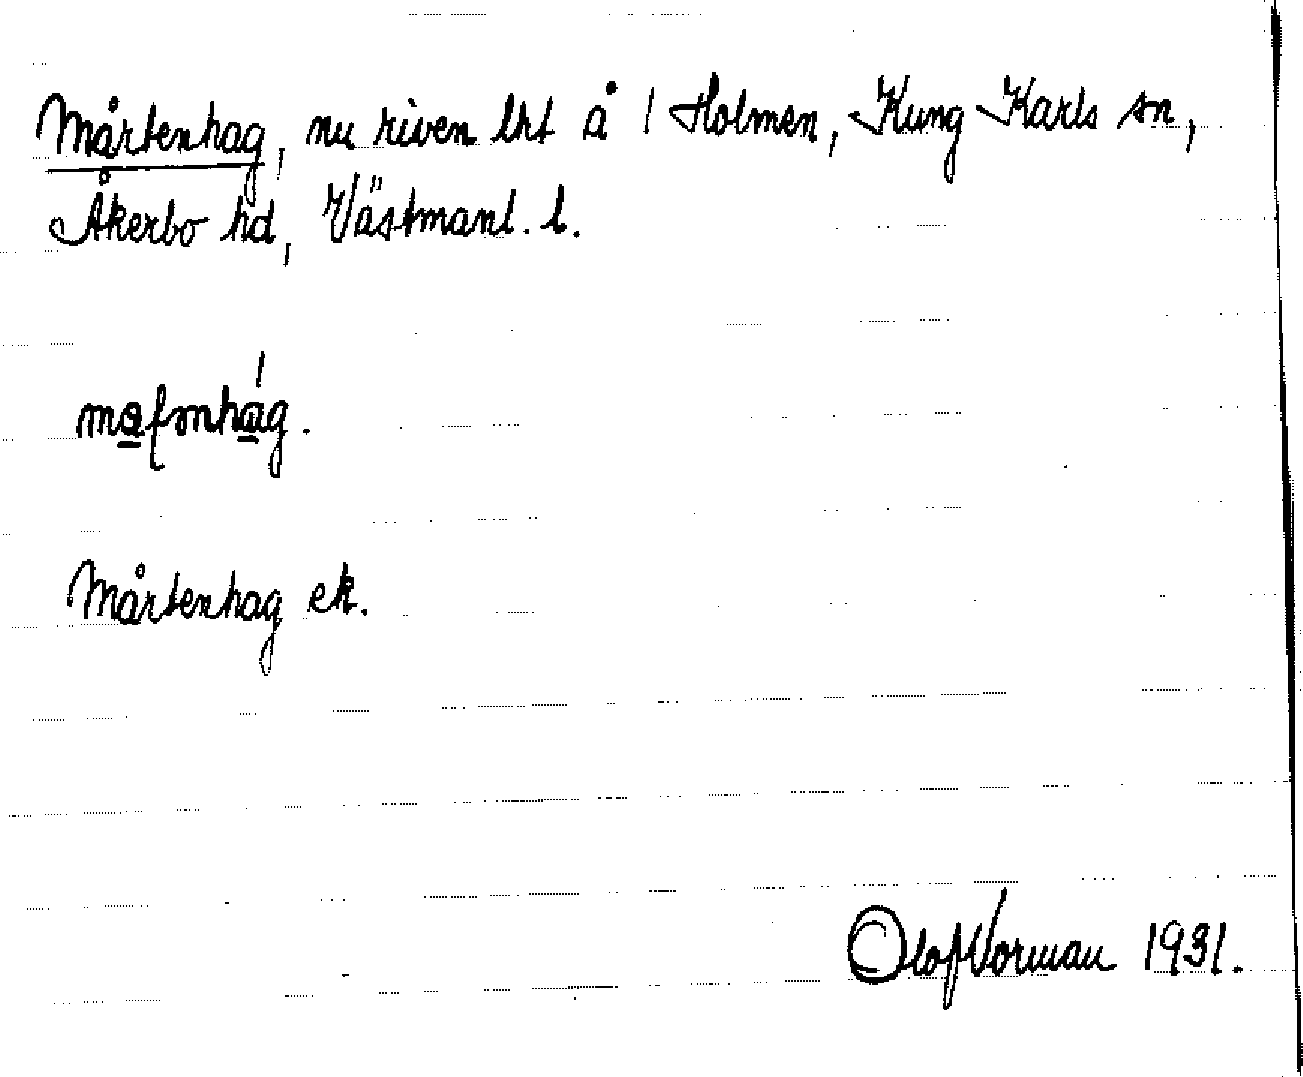 Mårtenhag, nu riven lht å 1 Holmen, Kung Karls sn,
Åkerbo hd, Västmanl. l.
Mårtenhag ek.
Olof Norman 1931.